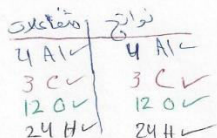 متفاعلات نواتج
4 Al ✓ 4 Al ✓
3 C ✓ 3 C ✓
12 O ✓ 12 O ✓
24 H ✓ 24 H ✓